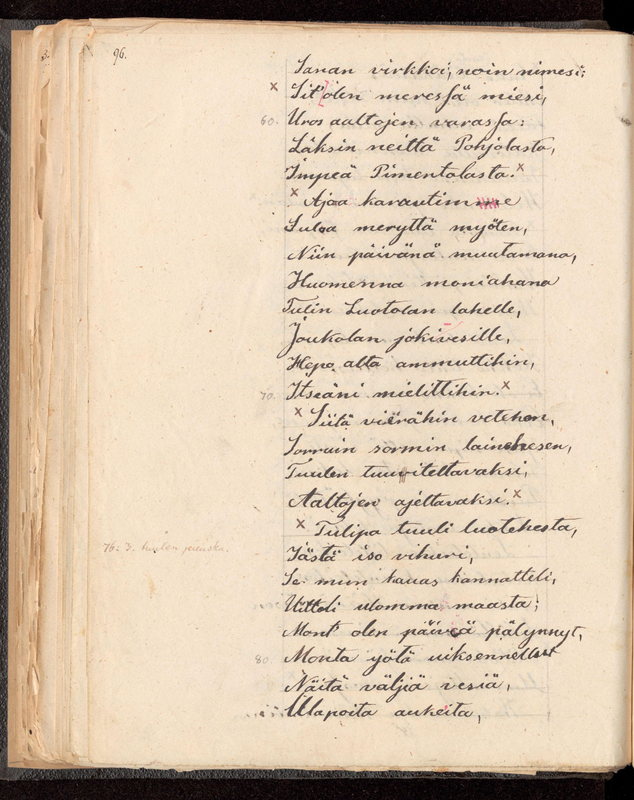 96.
Sanan virkkoi, noin nimesi:
× Sit' olen meressä miesi,
60. Uros aaltojen varassa:
Läksin neittä Pohjolasta,
Impeä Pimentolasta. ×
× Ajaa karautimme
Sulaa meryttä myöten,
Niin päivänä muutamana,
Huomenna moniahana
Tulin Luotolan lahelle,
Joukolan jokivesille,
Hepo alta ammuttihin,
70. Itseäni mielittihin. ×
× Siitä vierähin vetehen,
Sorruin sormin lainehesen,
Tuulen tuuviteltavaksi,
Aaltojen ajeltavaksi. ×
× Tulipa tuuli luotehesta,
76: 3.
Iästä iso vihuri,
Se mun kauas kannatteli,
Uitteli ulomma maasta;
Mont' olen päiveä pälynnyt,
80. Monta yötä uiksennellut
Näitä väljiä vesiä,
Ulapoita aukeita,